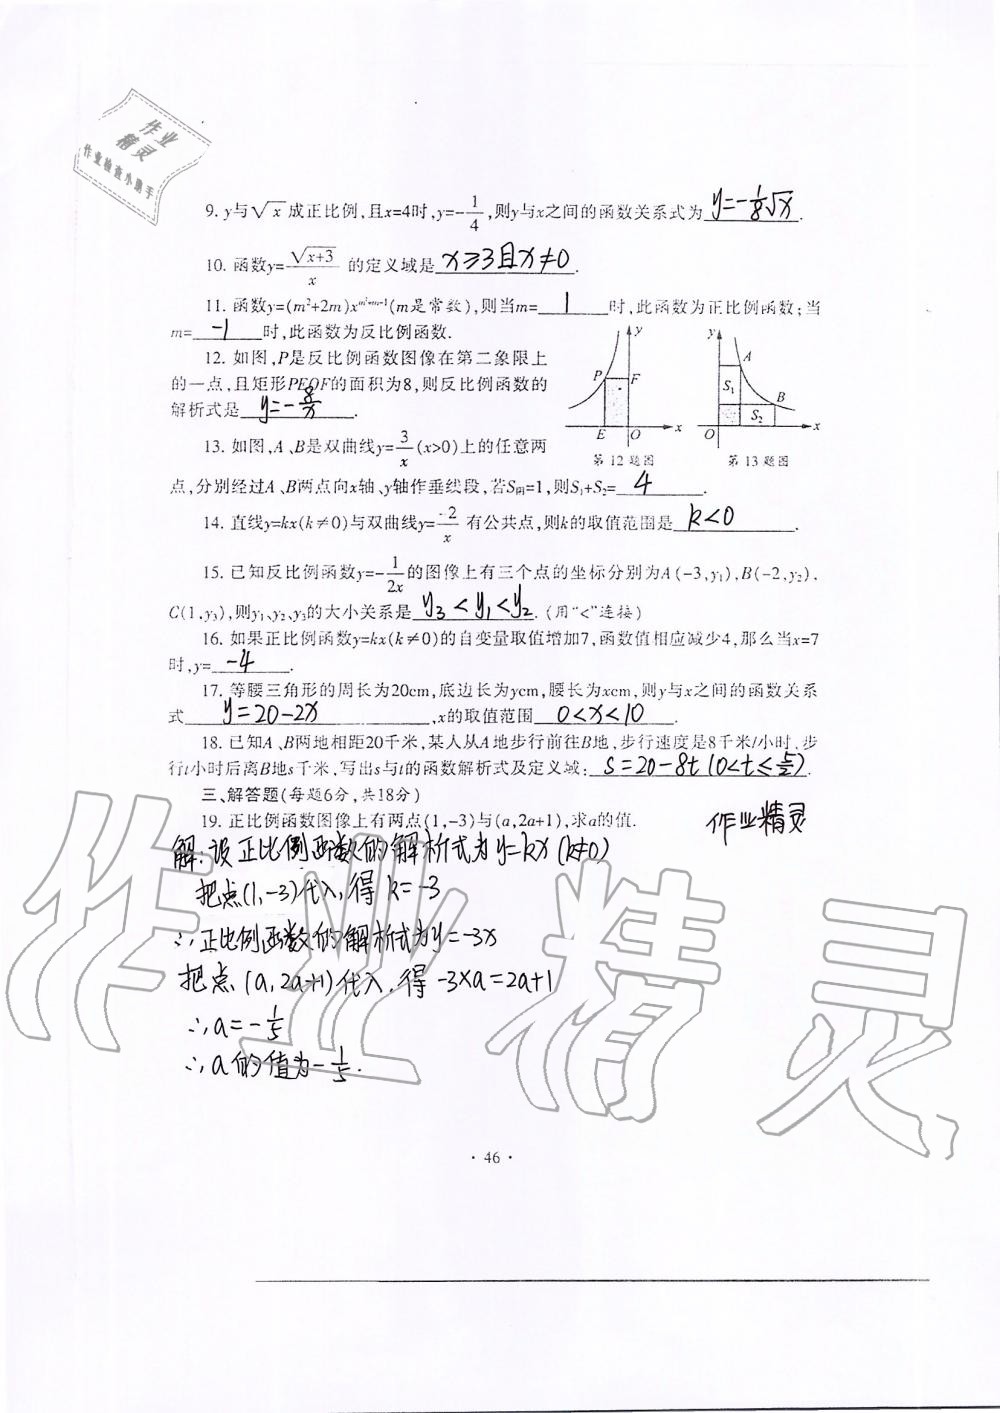 作业
精灵
作业检查小助手
9. y与√x 成正比例,且x=4时,y=-1/4,则y与x之间的函数关系式为 y=-1/8√x .
10. 函数y=√(x+3)/x 的定义域是 x≥3且x≠0 .
11. 函数y=(m²+2m)x^(m²+m-1)(m是常数),则当m= 1 时,此函数为正比例函数;当
m= -1 时,此函数为反比例函数.
12. 如图,P是反比例函数图像在第二象限上
的一点,且矩形PEOF的面积为8,则反比例函数的
解析式是 y=-8/x .
y
P
F
E
O
x
第12题图
y
A
S₁
B
S₂
O
x
第13题图
13. 如图,A、B是双曲线y=3/x(x>0)上的任意两
点,分别经过A、B两点向x轴、y轴作垂线段,若S阴=1,则S₁+S₂= 4 .
14. 直线y=kx(k≠0)与双曲线y=-2/x 有公共点,则k的取值范围是 k<0 .
15. 已知反比例函数y=-1/2x的图像上有三个点的坐标分别为A(-3,y₁),B(-2,y₂),
C(1,y₃),则y₁、y₂、y₃的大小关系是 y₃<y₁<y₂ .(用“<”连接)
16. 如果正比例函数y=kx(k≠0)的自变量取值增加7,函数值相应减少4,那么当x=7
时,y= -4 .
17. 等腰三角形的周长为20cm,底边长为ycm,腰长为xcm,则y与x之间的函数关系
式 y=20-2x ,x的取值范围 0<x<10 .
18. 已知A、B两地相距20千米,某人从A地步行前往B地,步行速度是8千米/小时,步
行t小时后离B地s千米,写出s与t的函数解析式及定义域: s=20-8t (0<t≤5/2) .
三、解答题(每题6分,共18分)
19. 正比例函数图像上有两点(1,-3)与(a,2a+1),求a的值.
作业精灵
解:设正比例函数的解析式为y=kx (k≠0)
把点(1,-3)代入,得k=-3
∴正比例函数的解析式为y=-3x
把点(a,2a+1)代入,得-3×a=2a+1
∴a=-1/5
∴a的值为-1/5.
作业精灵
· 46 ·